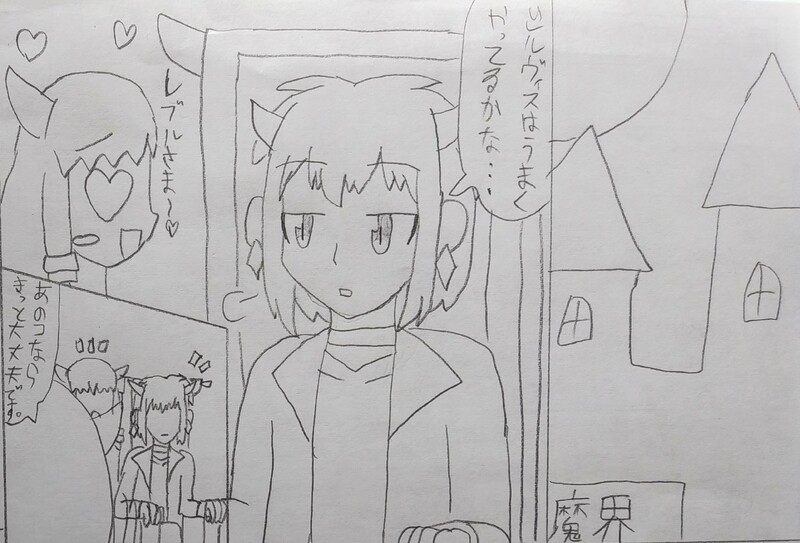 魔界
シルヴィスはうまく
やってるかな…
レブルさま〜♡
あのコなら
きっと大丈夫です。